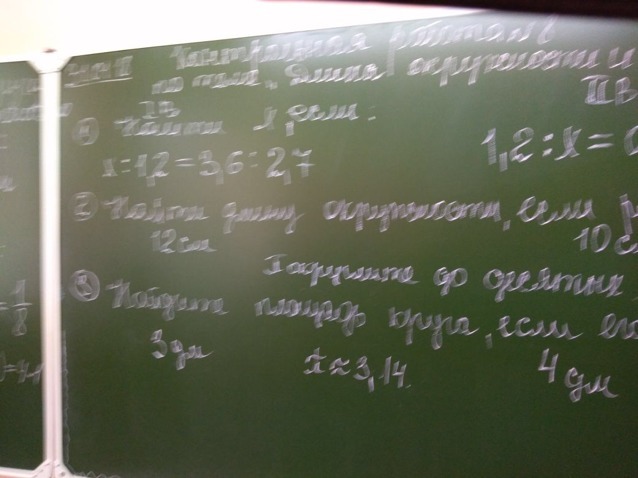 Контрольная работа
по теме "Длина окружности и
I в
II в
① Найти x, если:
x : 1,2 = 3,6 : 2,7
1,2 : x =
② Найти длину окружности, если
12 см
10 с
π округлите до десятых
③ Найдите площадь круга, если
3 дм
π ≈ 3,14.
4 дм
= 1/8